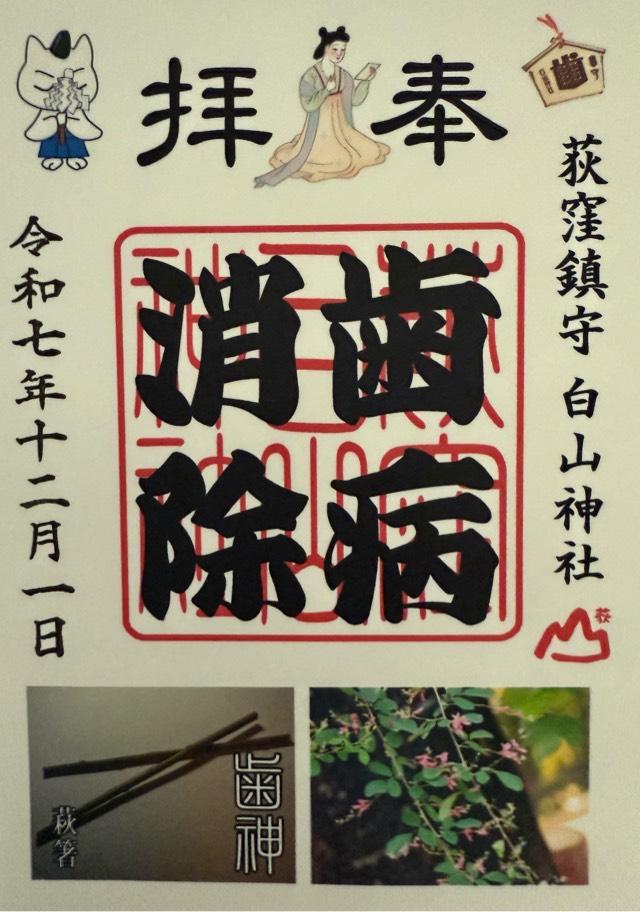 奉拝
荻窪鎮守 白山神社
歯病
消除
令和七年十二月一日
荻窪
白山
神社
歯
歯神
萩箸